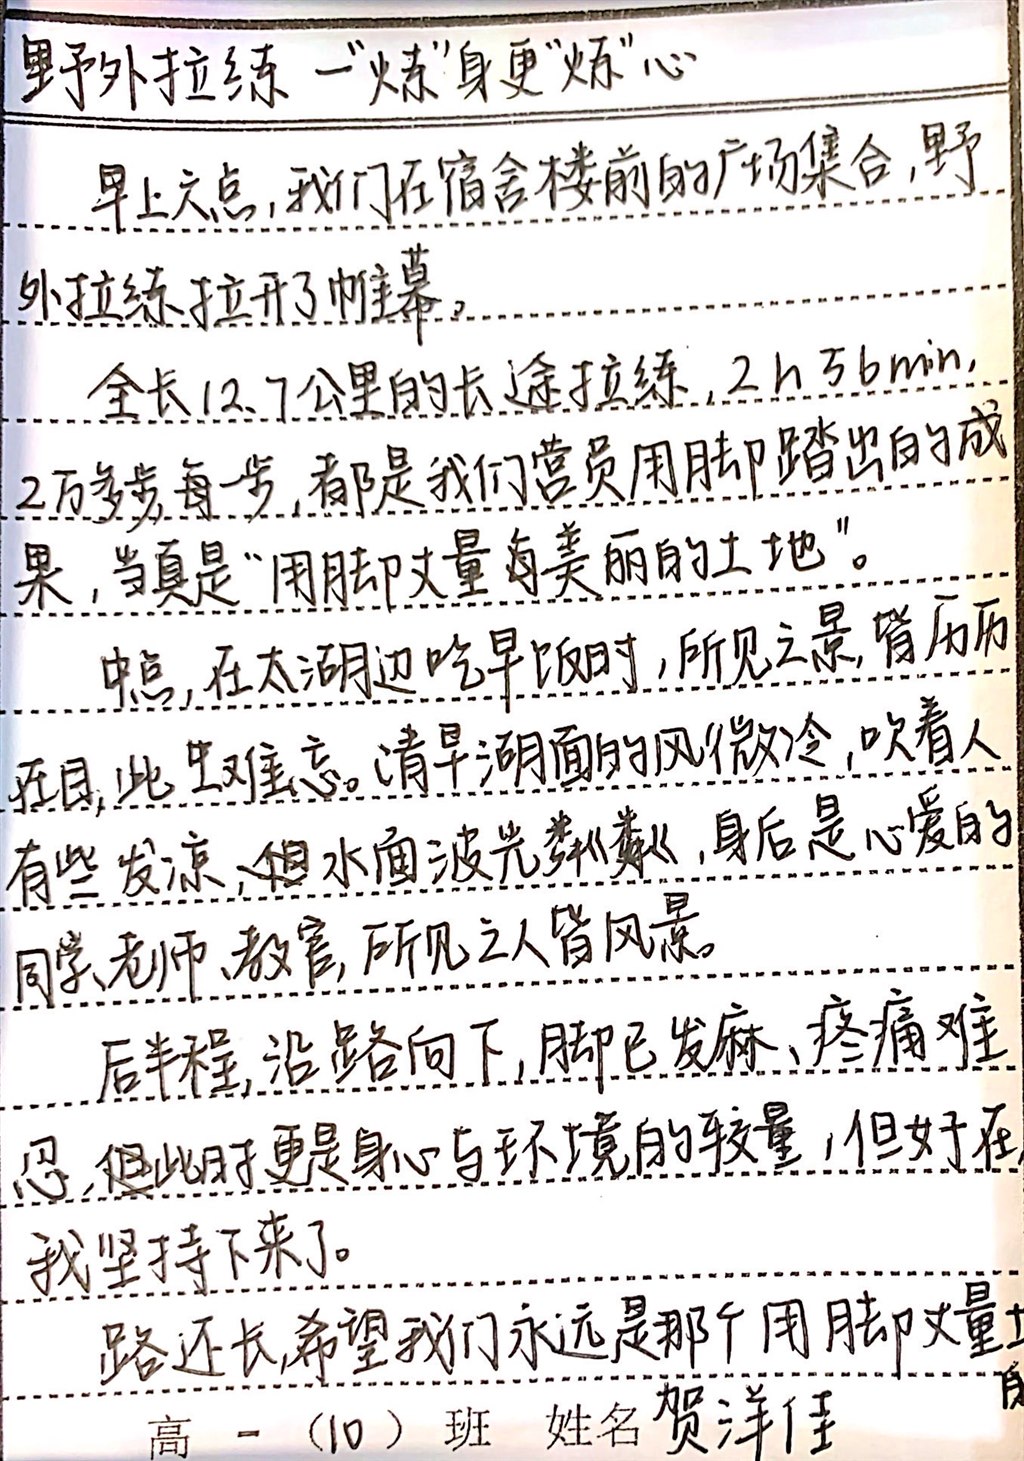 野外拉练 一"炼"身更"炼"心
早上六点，我们在宿舍楼前的广场集合，野
外拉练拉开了帷幕。
全长12.7公里的长途拉练，2h56min，
2万多步，每一步，都是我们营员用脚踏出的成
果，当真是"用脚丈量每美丽的土地"。
中点，在太湖边吃早饭时，所见之景，皆历历
在目，此生难忘。清早湖面的风微冷，吹着人
有些发凉，但水面波光粼粼，身后是心爱的
同学、老师、教官，所见之人皆风景。
后半程，沿路向下，脚已发麻、疼痛难
忍，但此时更是身心与环境的较量，但好在，
我坚持下来了。
路还长，希望我们永远是那个用脚丈量土
高一（10）班 姓名 贺洋佳